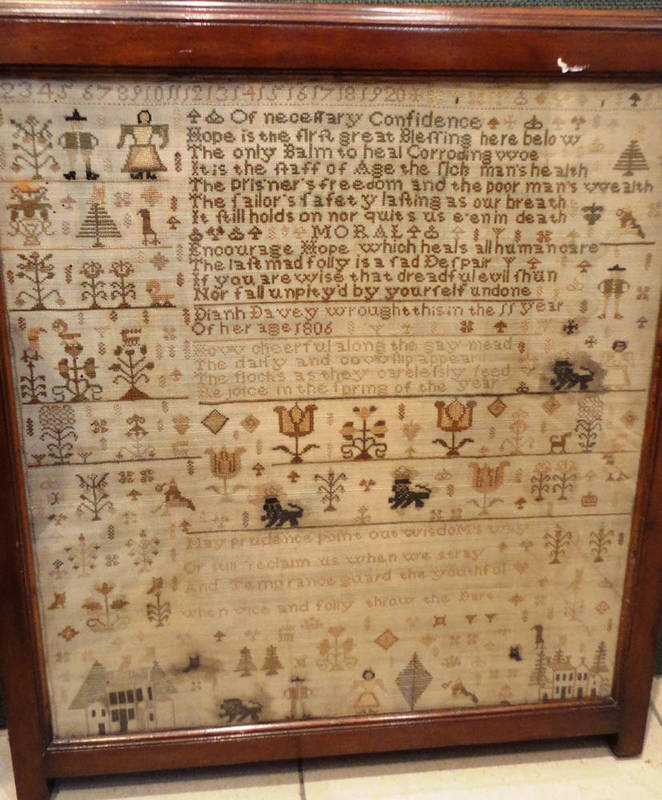 2 3 4 5 6 7 8 9 10 11 12 13 14 15 16 17 18 19 20
Of neceſsary Confidence
Hope is the firſt great Bleſsing here below
The only Balm to heal Corroding woe
It is the ſtaff of Age the ſick man's health
The priſ'ner's freedom and the poor man's wealth
The ſailor's ſafety laſting as our breath
It ſtill holds on nor quits us e'en in death
MORAL
Encourage Hope which heals all human care
The laſt mad folly is a ſad Deſpair
If you are wiſe that dreadful evil ſhun
Nor fall unpity'd by yourſelf undone
Dianh Davey wrought this in the 11 year
Of her age 1806
How cheerful along the gay mead
The daiſy and cowſlip appear
The flocks as they careleſsly feed
Rejoice in the ſpring of the year
May prudence point out wisdoM's way
Or still reclaim us when we stray
And Temp'rance guard the youthful
when vice and folly throw the Dart